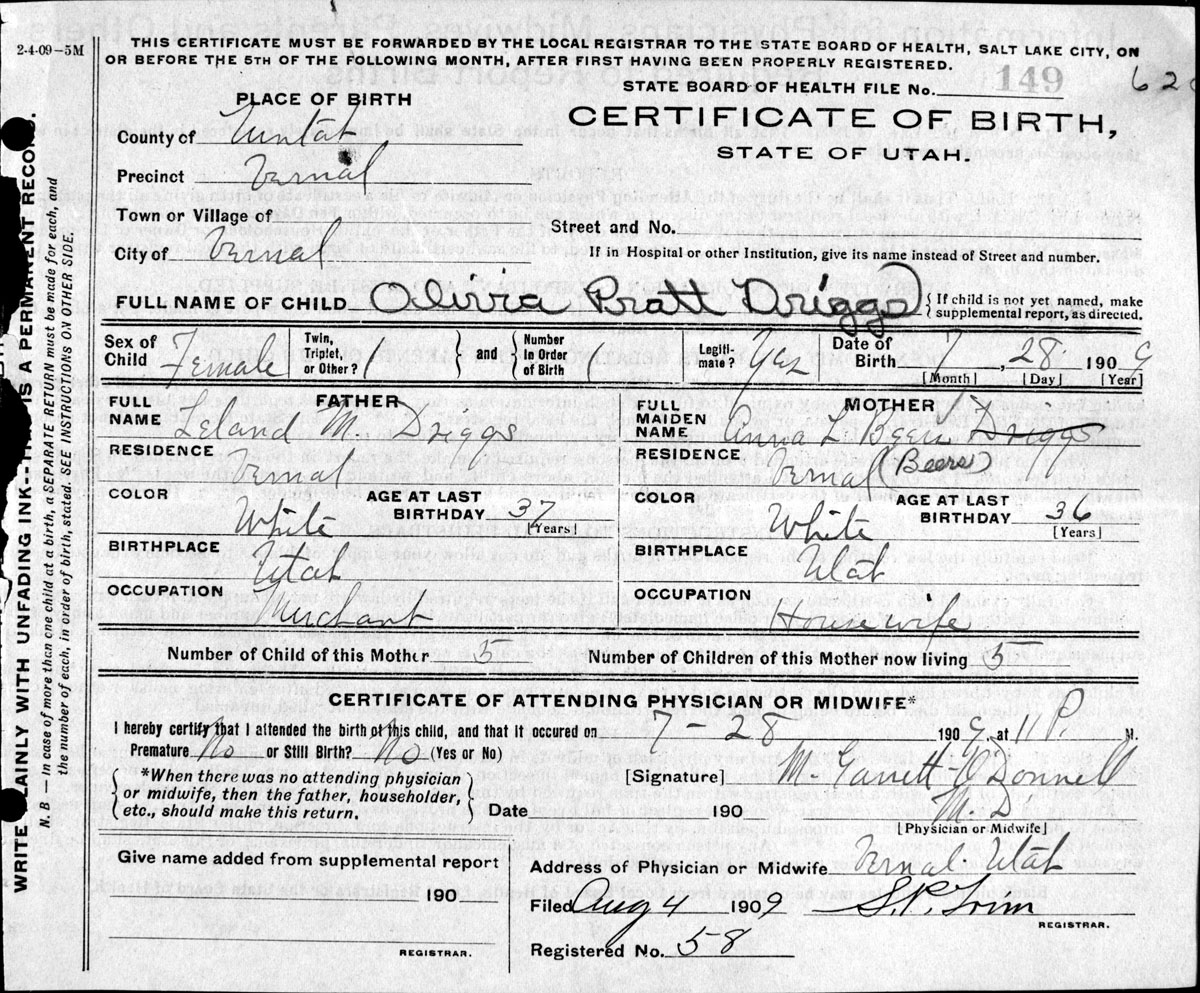 2-4-09-5M
THIS CERTIFICATE MUST BE FORWARDED BY THE LOCAL REGISTRAR TO THE STATE BOARD OF HEALTH, SALT LAKE CITY, ON
OR BEFORE THE 5TH OF THE FOLLOWING MONTH, AFTER FIRST HAVING BEEN PROPERLY REGISTERED.
149
STATE BOARD OF HEALTH FILE No.
PLACE OF BIRTH
CERTIFICATE OF BIRTH,
STATE OF UTAH.
County of Uintah
Precinct Vernal
Town or Village of
Street and No.
City of Vernal
If in Hospital or other Institution, give its name instead of Street and number.
FULL NAME OF CHILD Olivia Pratt Driggs
{If child is not yet named, make
supplemental report, as directed.
Sex of Child Female
Twin, Triplet, or Other?
and
Number in Order of Birth
Legiti-mate? Yes
Date of Birth 7, 28 1909
[Month] [Day] [Year]
FATHER
FULL NAME Leland M. Driggs
RESIDENCE Vernal
COLOR White
AGE AT LAST BIRTHDAY 37
[Years]
BIRTHPLACE Utah
OCCUPATION Merchant
MOTHER
FULL MAIDEN NAME Anna L. Beers Driggs
RESIDENCE Vernal (Beers)
COLOR White
AGE AT LAST BIRTHDAY 36
[Years]
BIRTHPLACE Utah
OCCUPATION Housewife
Number of Child of this Mother 5
Number of Children of this Mother now living 5
CERTIFICATE OF ATTENDING PHYSICIAN OR MIDWIFE*
I hereby certify that I attended the birth of this child, and that it occured on 7-28 1909, at 11 P. M.
Premature No or Still Birth? No (Yes or No)
*When there was no attending physician
or midwife, then the father, householder,
etc., should make this return.
[Signature] M. Garrett O'Donnell
M.D
Date 190
[Physician or Midwife]
Give name added from supplemental report
190
REGISTRAR.
Address of Physician or Midwife Vernal Utah
Filed Aug 4 1909 S.P. Trim
REGISTRAR.
Registered No. 58
WRITE PLAINLY WITH UNFADING INK--THIS IS A PERMANENT RECORD.
N. B.—In case of more then one child at a birth, a SEPARATE RETURN must be made for each, and
the number of each, in order of birth, stated. SEE INSTRUCTIONS ON OTHER SIDE.